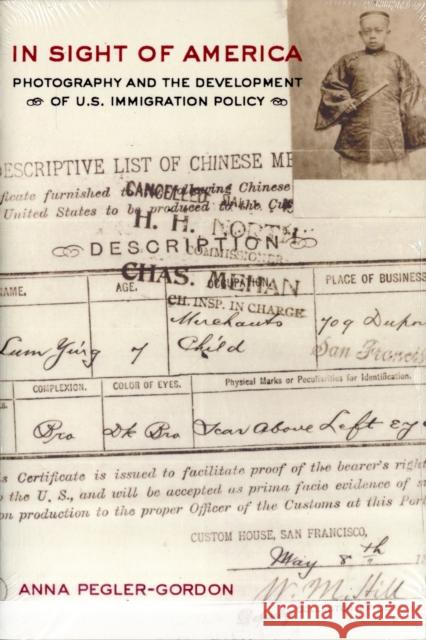 IN SIGHT OF AMERICA
PHOTOGRAPHY AND THE DEVELOPMENT
OF U.S. IMMIGRATION POLICY
DESCRIPTIVE LIST OF CHINESE ME
ficate furnished
Chinese
United States to be produced to the
CANCELLED
H. H. NORTH
COMMISSIONER
DESCRIPTION
CHAS. MEHAN
CH. INSP. IN CHARGE
NAME. AGE. OCCUPATION PLACE OF BUSINESS
Lum Ying 7 Merchants Child 709 Dupon
San Francis
COMPLEXION. COLOR OF EYES. Physical Marks or Peculiarities for Identification.
Bro Dk Bro Scar Above Left Ey
s Certificate is issued to facilitate proof of the bearer's right
the U. S., and will be accepted as prima facie evidence of
on production to the proper Officer of the Customs at this Port
CUSTOM HOUSE, SAN FRANCISCO,
May 8th
ANNA PEGLER-GORDON